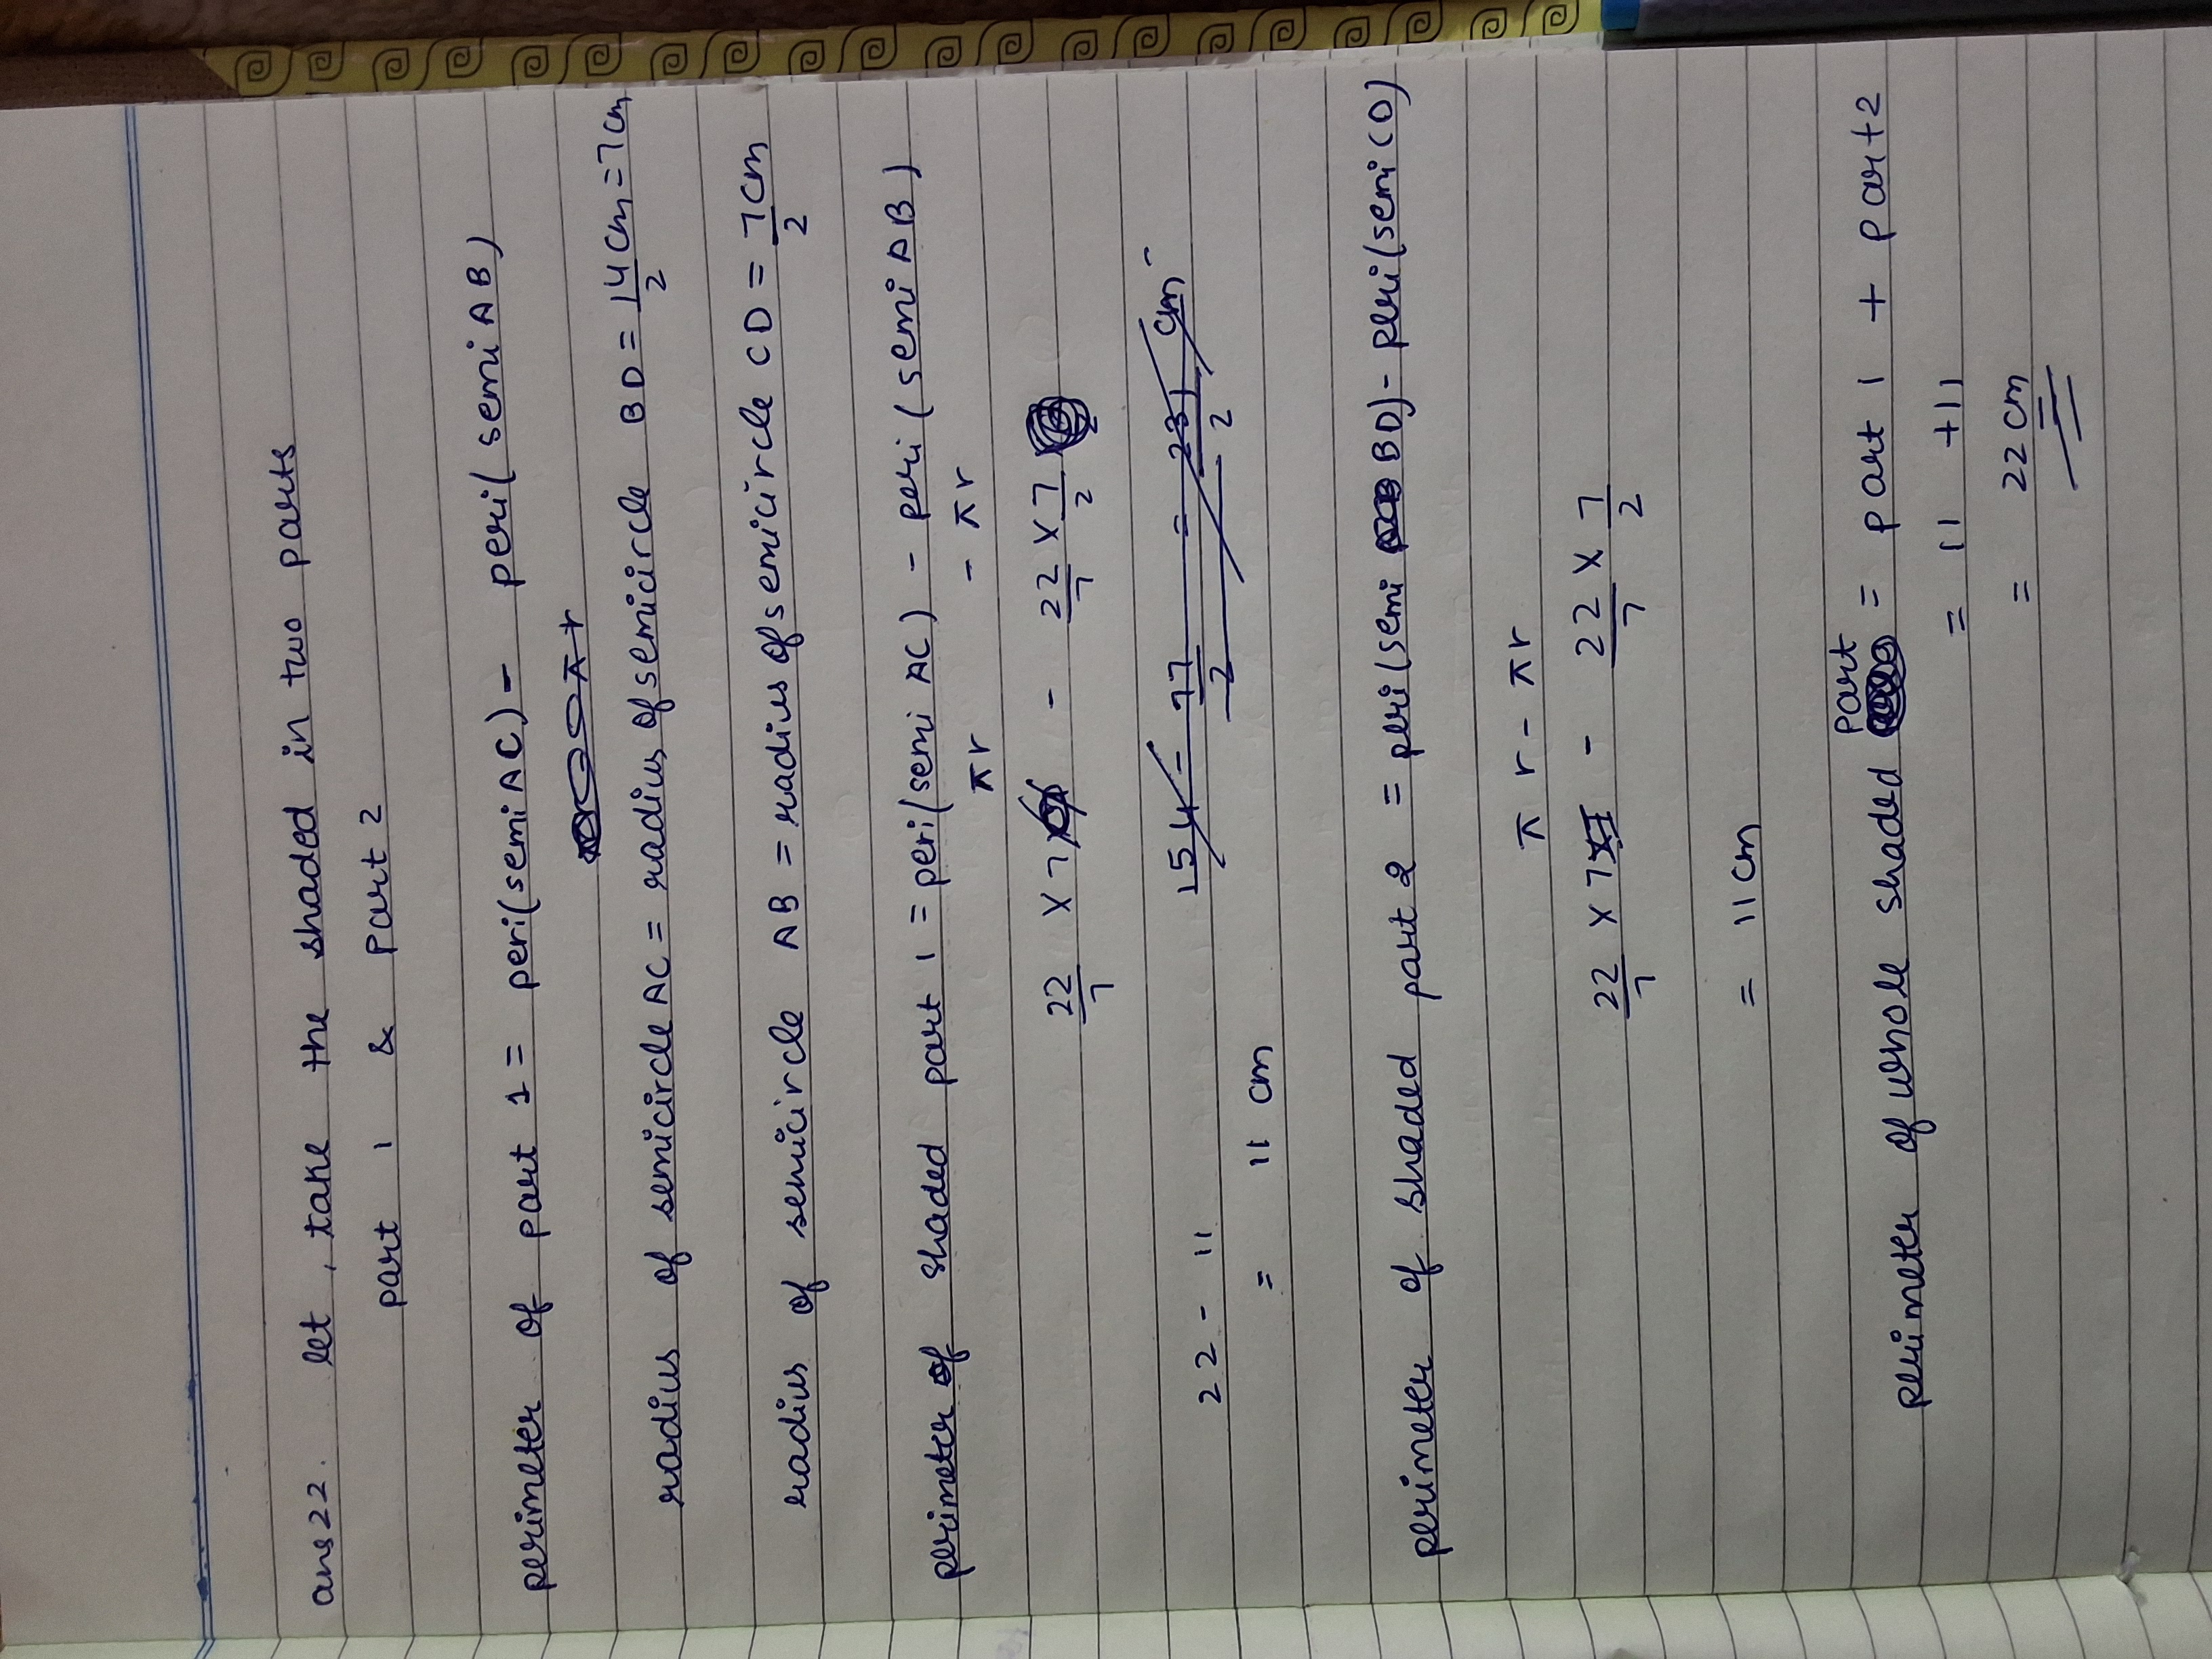 ans22. let, take the shaded in two parts
part 1 & part 2
perimeter of part 1 = peri(semi AC) - peri(semi AB)
πr
radius of semicircle AC = radius of semicircle BD = 14cm/2 = 7cm
radius of semicircle AB = radius of semicircle CD = 7cm/2
perimeter of shaded part 1 = peri(semi AC) - peri(semi AB)
πr - πr
22/7 × 7 - 22/7 × 7/2
154 - 77/2 = 231/2 cm
22 - 11
= 11 cm
perimeter of shaded part 2 = peri(semi BD) - peri(semi CD)
πr - πr
22/7 × 7 - 22/7 × 7/2
= 11 cm
perimeter of whole shaded part = part 1 + part 2
= 11 + 11
= 22cm